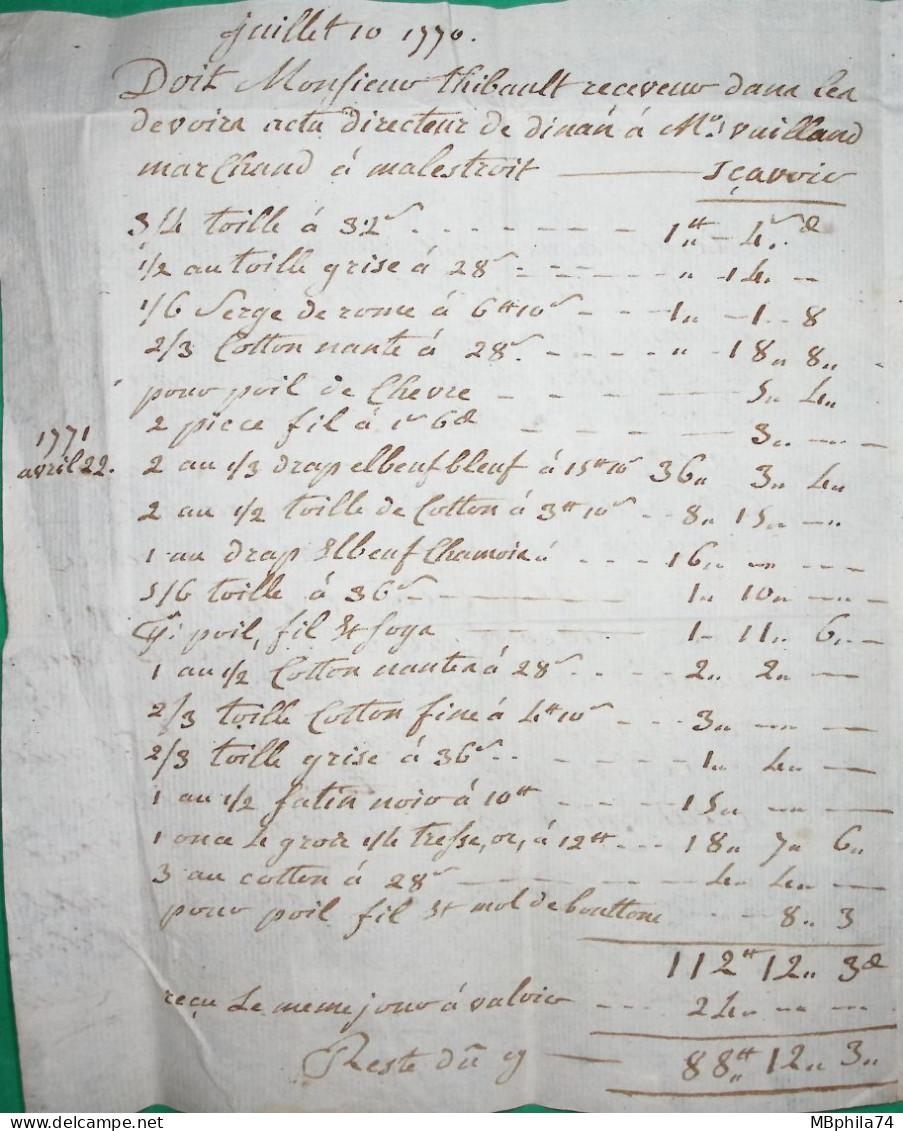 juillet 10 1770.
Doit Monsieur thibault receveur dans Les
devoirs actu directeur de dinan á Mr. vailland
marchand á malestroit — Sçavoir
3/4 toille á 32s - - - - - - - 1tt„ - 4s„ d
1/2 au toille grise á 28s - - - - - - „ 14„ —
1/6 Serge de rome á 6tt10s - - - 1„ - 1 - 8
2/3 Cotton nante á 28s. - - - - „ - 18„ 8„
pour poil de Chevre - - - - — 5„ 4„
2 piece fil á 1s 6d - - - - — 3„ — —
1771
avril 22. 2 au 1/3 drap elbeuf bleuf á 15tt10s 36„ 3„ 4„
2 au 1/2 toille de Cotton á 3tt10s - - 8„ 15„ —
1 au drap Elbeuf Chamois á - - - 16„ — - -
5/6 toille á 36s - — 1„ 10„ — —
poil, fil Et soya - — - - 1 - 11„ 6„ —
1 au 1/2 Cotton nantes á 28s - - - - 2„ 2„ —
2/3 toille Cotton fine á 4tt10s - - - 3„ — —
2/3 toille grise á 36s - - - - - - - 1„ 4„ —
1 au 1/2 satin noir á 10tt - - - - 15„ — —
1 once Le gros 1/4 tresse, or, á 12tt - - - 18„ 7„ 6„
3 au cotton á 28s — - - - — 4„ 4„ —
pour poil fil Et mol de bouttons - - - - 8„ 3
112tt 12„ 3d
reçu Le meme jour á valoir - - - 24„ — —
Reste dû — 88tt„ 12„ 3„
MBphila74